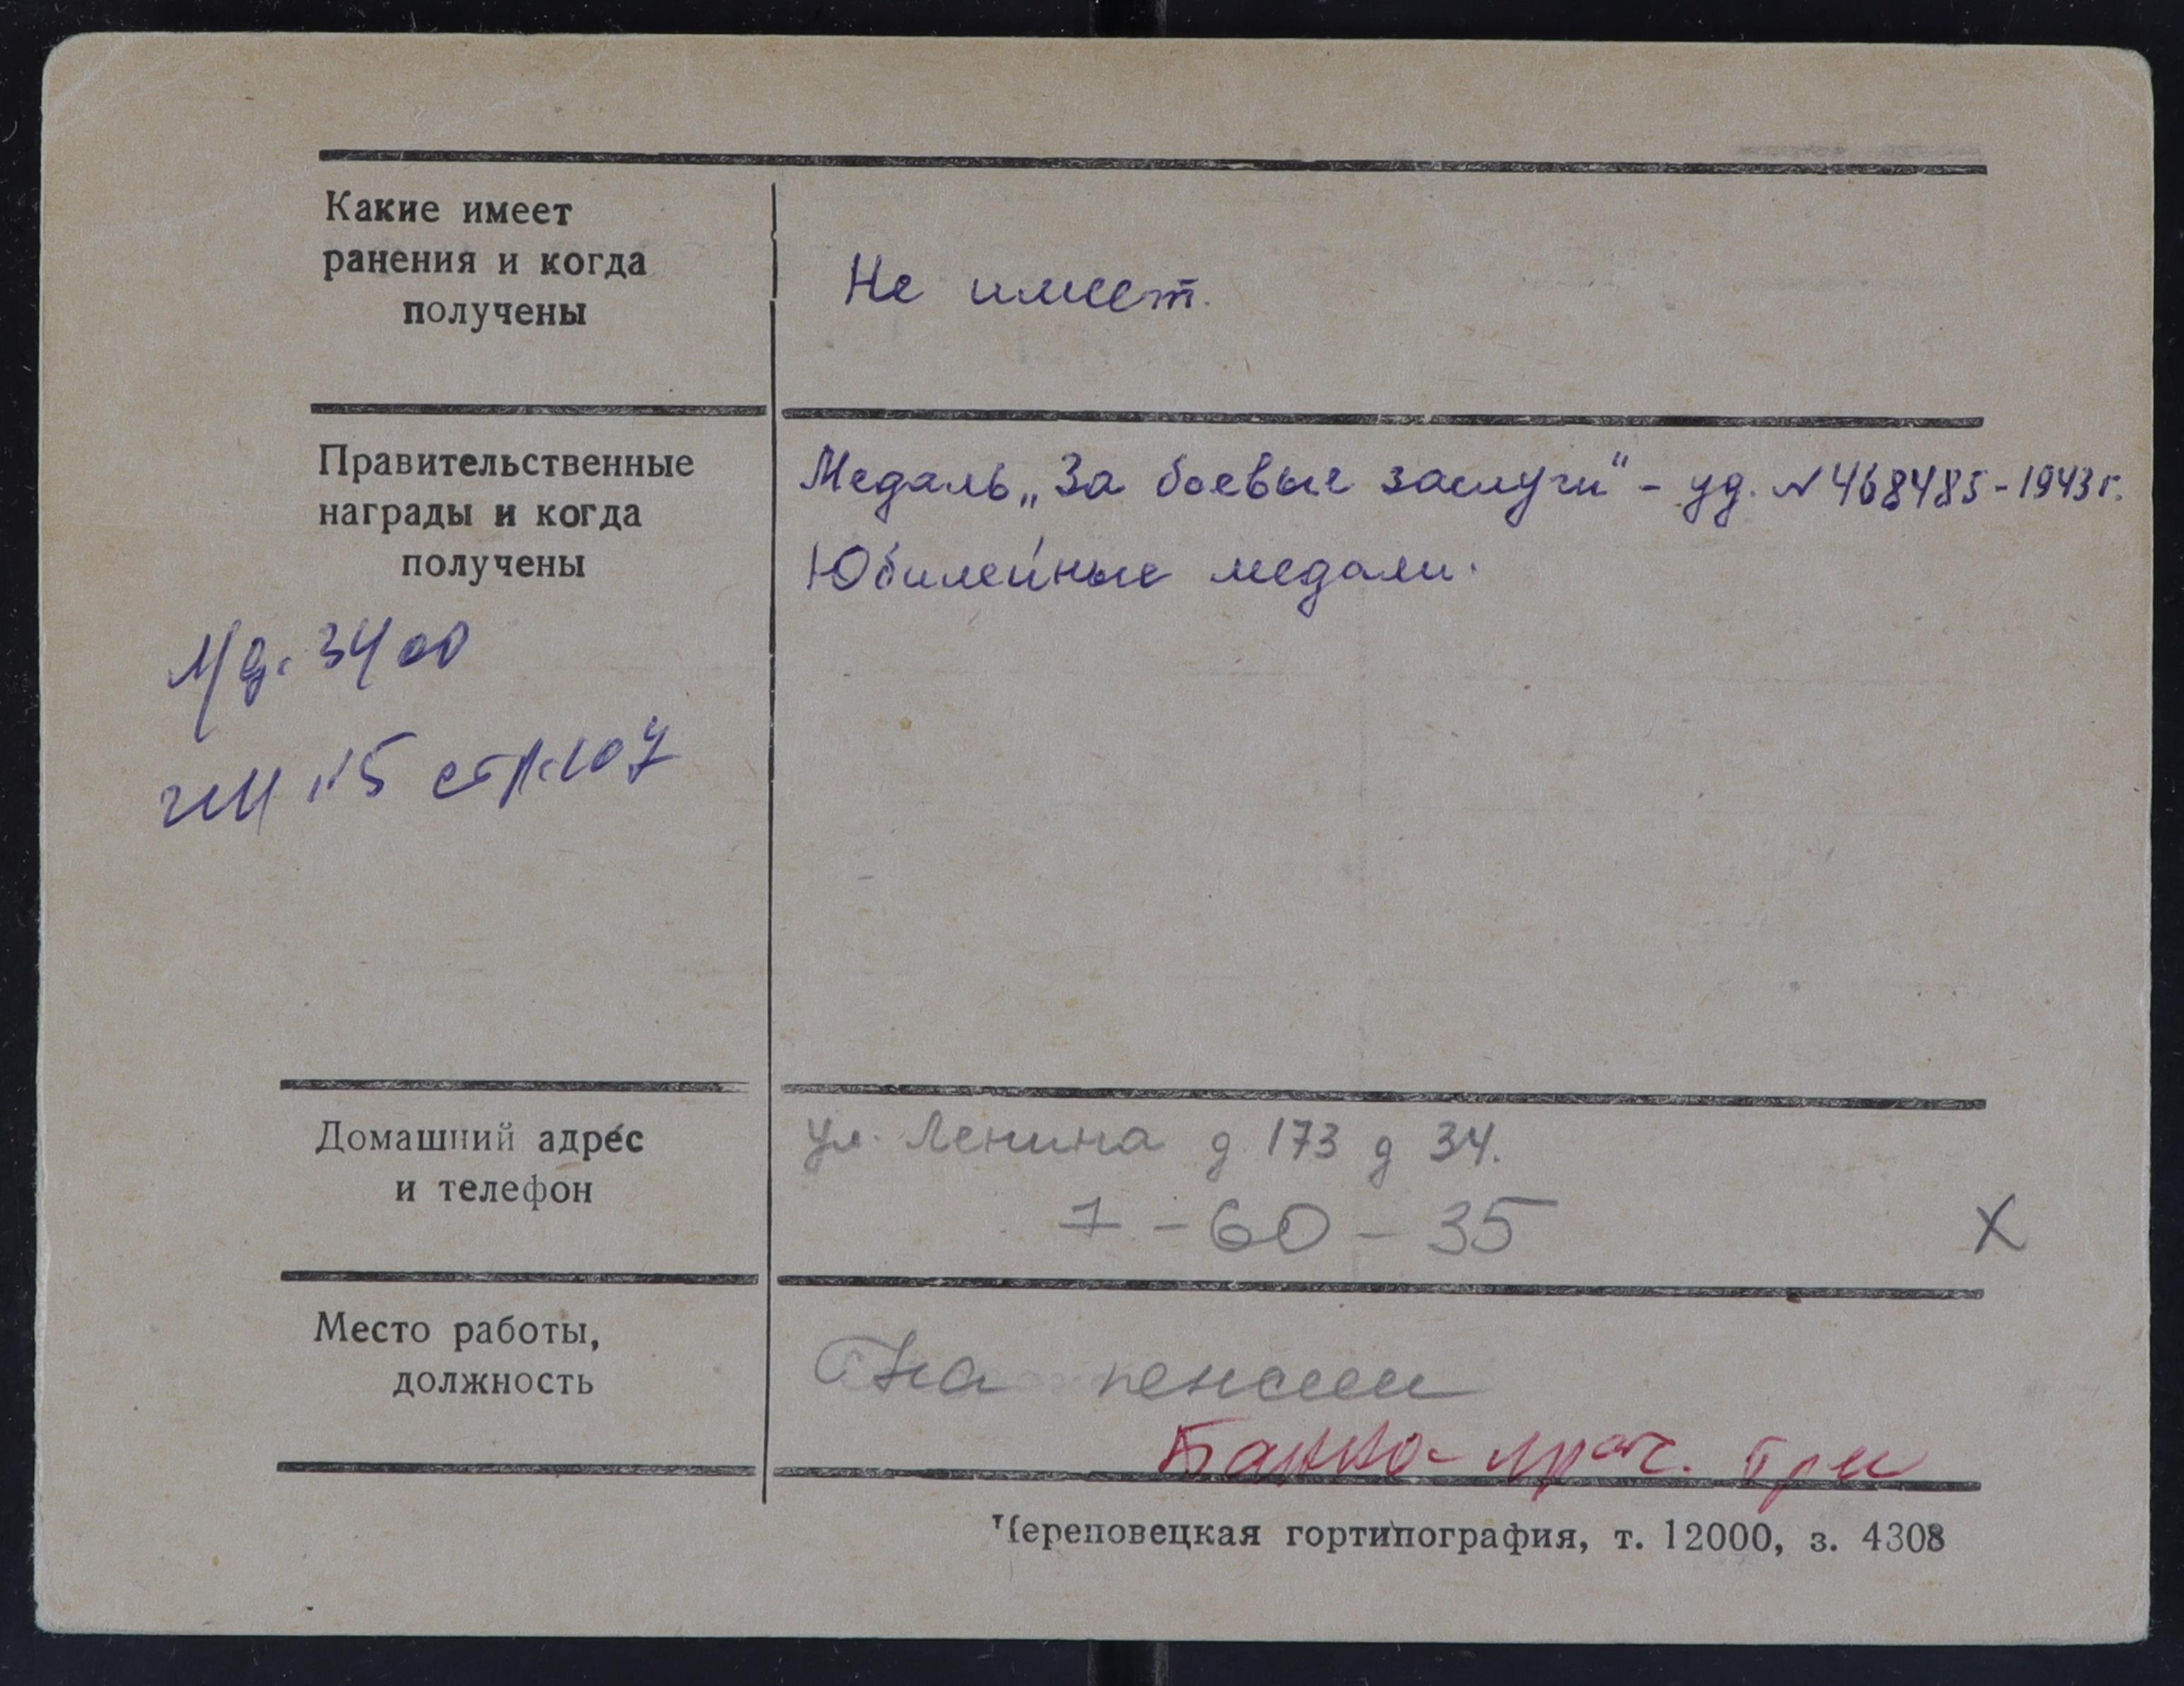 Какие имеет
ранения и когда
получены
Не имеет.
Правительственные
награды и когда
получены
Медаль „За боевые заслуги" - уд. № 468485 - 1943 г.
Юбилейные медали.
3400
№5 стр. 107
Домашний адрес
и телефон
ул. Ленина д 173 д 34.
7 - 60 - 35
X
Место работы,
должность
На пенсии
Череповецкая гортипография, т. 12000, з. 4308